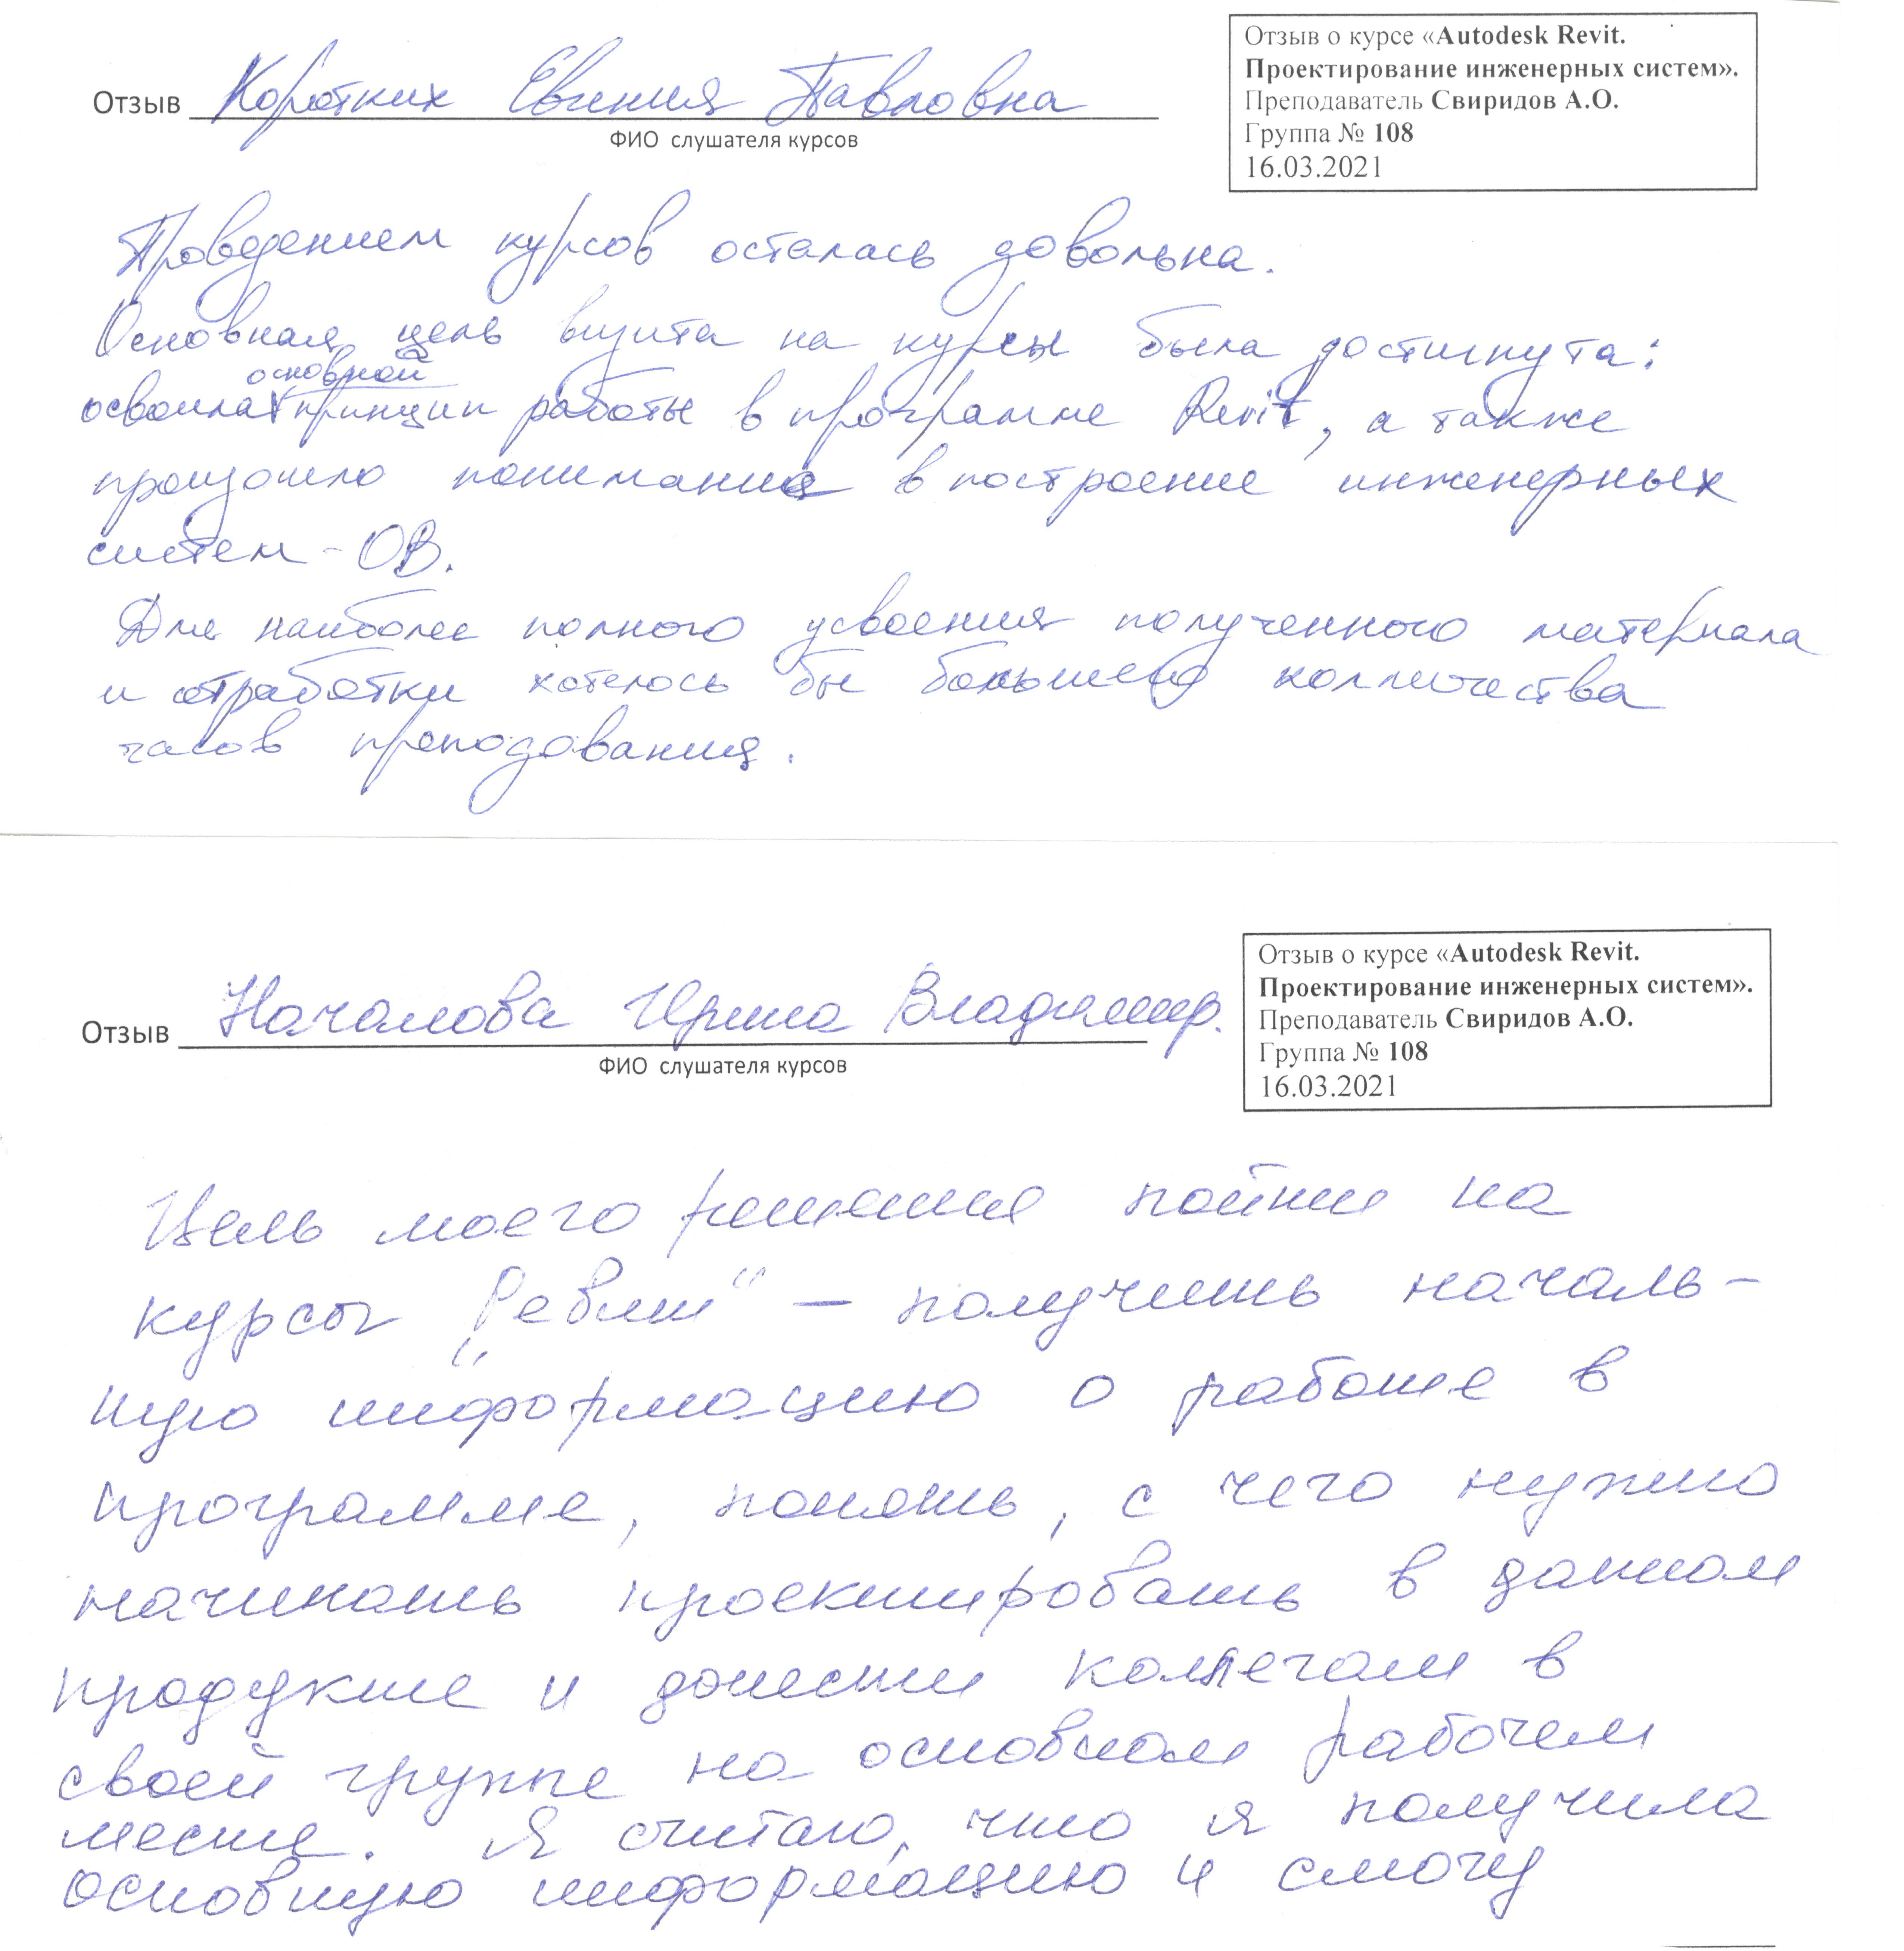 Отзыв Коротких Евгения Павловна
ФИО слушателя курсов
Отзыв о курсе «Autodesk Revit.
Проектирование инженерных систем».
Преподаватель Свиридов А.О.
Группа № 108
16.03.2021
Проведением курсов осталась довольна.
Основная цель визита на курсы была достигнута:
основной
освоила принцип работы в программе Revit, а также
произошло понимание в построение инженерных
систем - ОВ.
Для наиболее полного усвоения полученного материала
и отработки хотелось бы большего колличества
часов преподования.
Отзыв Началова Ирина Владимир.
ФИО слушателя курсов
Отзыв о курсе «Autodesk Revit.
Проектирование инженерных систем».
Преподаватель Свиридов А.О.
Группа № 108
16.03.2021
Цель моего решения пойти на
курсы „Ревит“ – получить началь-
ную информацию о работе в
программе, понять, с чего нужно
начинать проектировать в данном
продукте и донести коллегам в
своей группе на основном рабочем
месте. Я считаю, что я получила
основную информацию и смогу